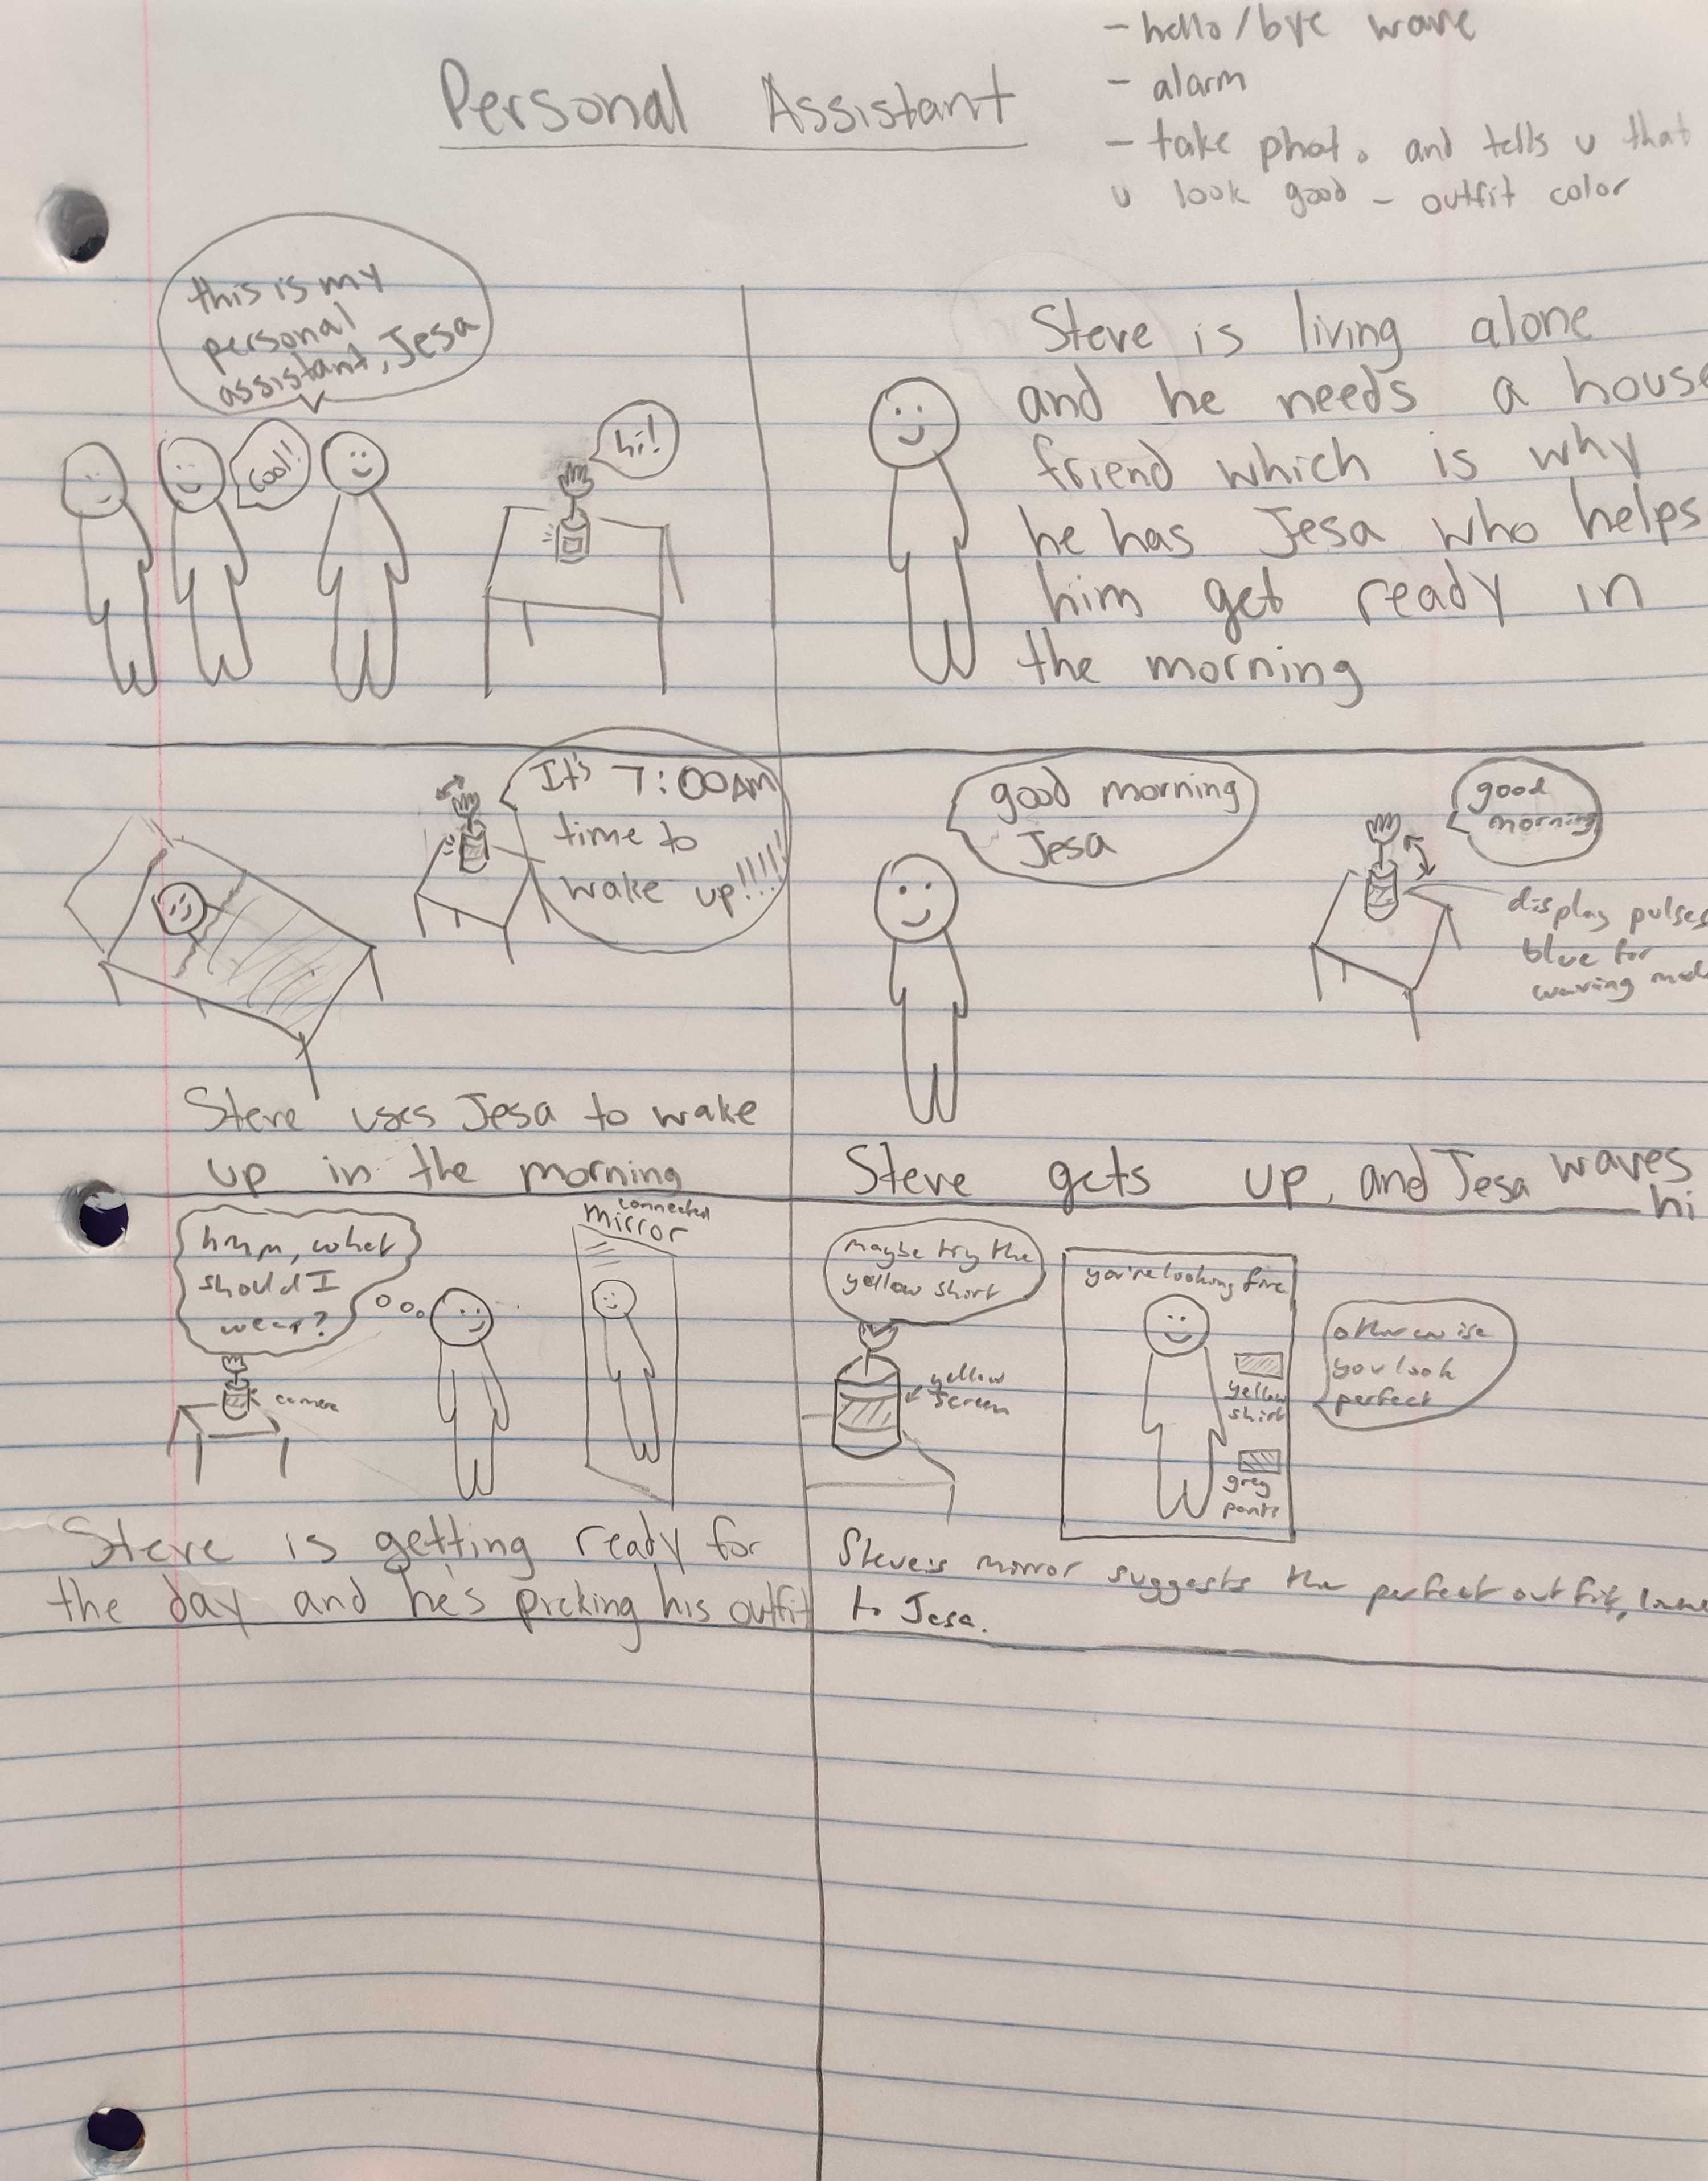 Personal Assistant
- hello/bye wave
- alarm
- take phot. and tells u that
u look good - outfit color
this is my
personal
assistant, Jesa
cool!
hi!
Steve is living alone
and he needs a house
friend which is why
he has Jesa who helps
him get ready in
the morning
It's 7:00AM
time to
wake up!!!!!
Steve uses Jesa to wake
up in the morning
good morning
Jesa
good
morning
display pulses
blue for
waving
Steve gets up, and Jesa waves
hi
hmm, what
should I
wear?
connected
mirror
camera
Steve is getting ready for
the day and he's picking his outfit
maybe try the
yellow shirt
yellow
screen
you're looking fine
yellow
shirt
grey
pants
otherwise
you look
perfect
Steve's mirror suggests the perfect outfit,
to Jesa.